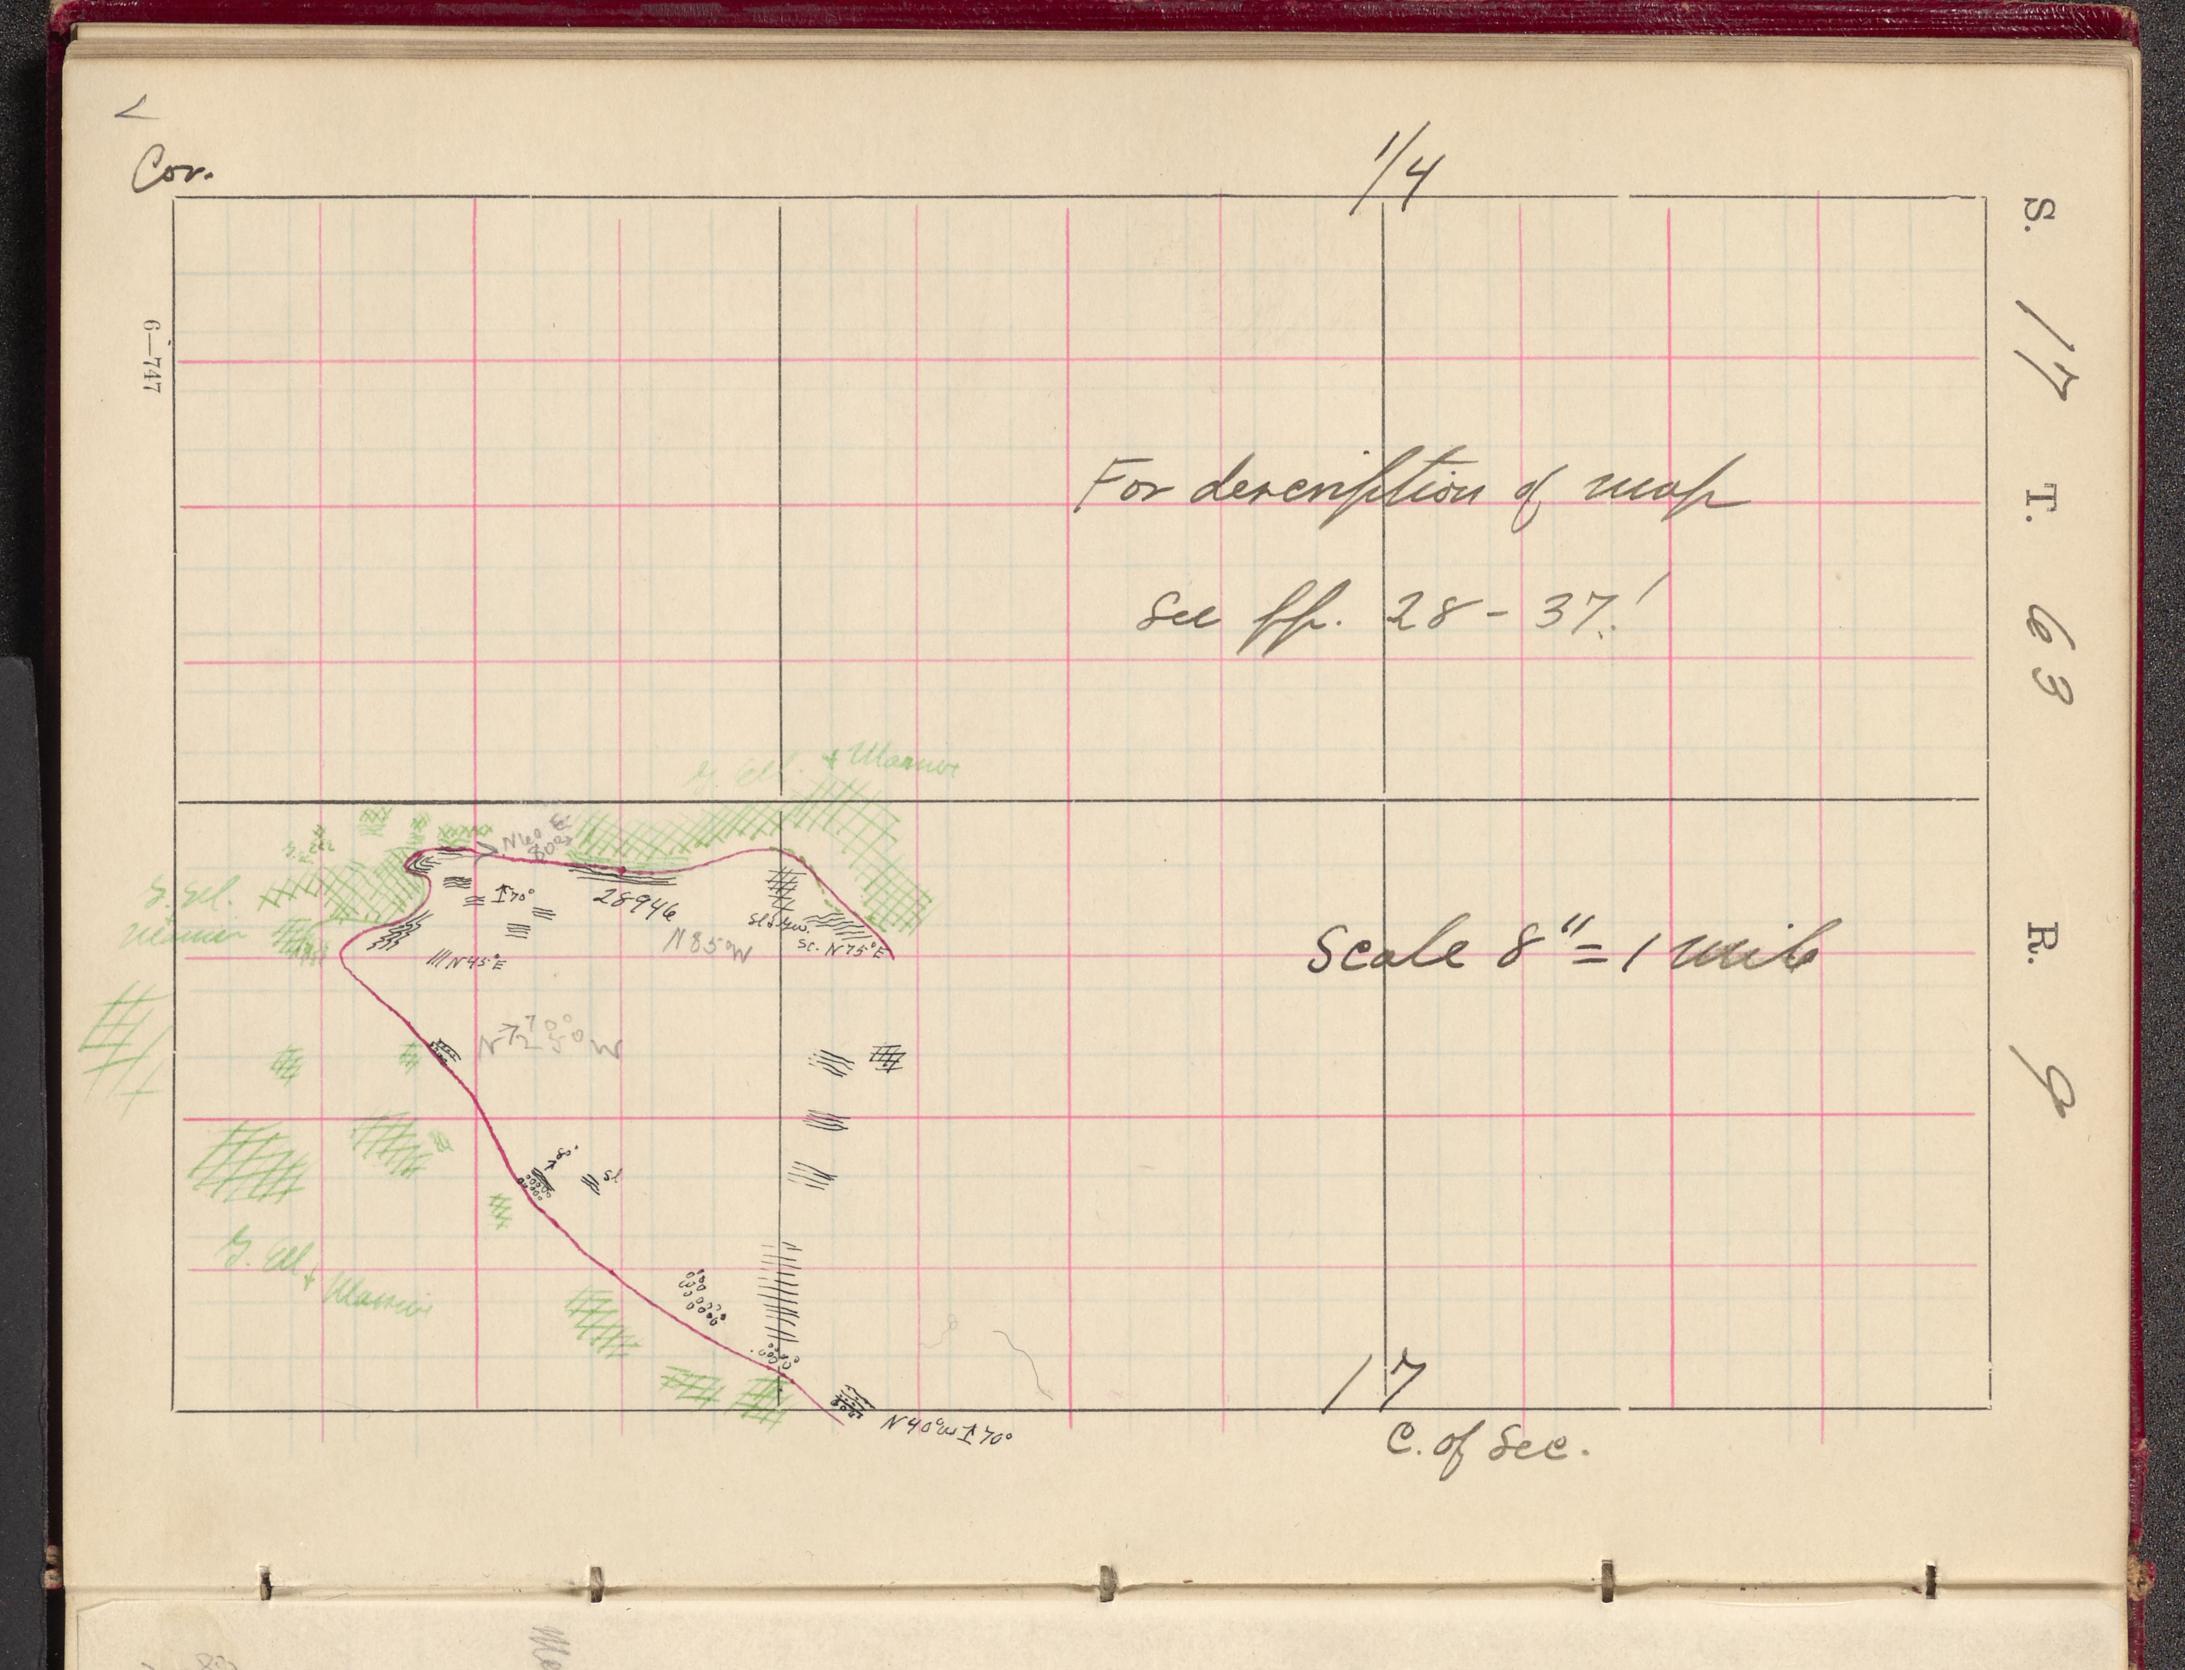 Cor.
1/4
S. 17 T. 63 R. 9
6—747
For description of map
see pp. 28 - 37!
G. Ell. + Manuir
N60°E
80°
G. Ell.
70°
28946
N85W
Sl & Gw.
Sc. N75°E
N45°E
Scale 8" = 1 mile
70°
N25°W
Sl.
G. Ell +
N40°W 70°
17
C. of Sec.